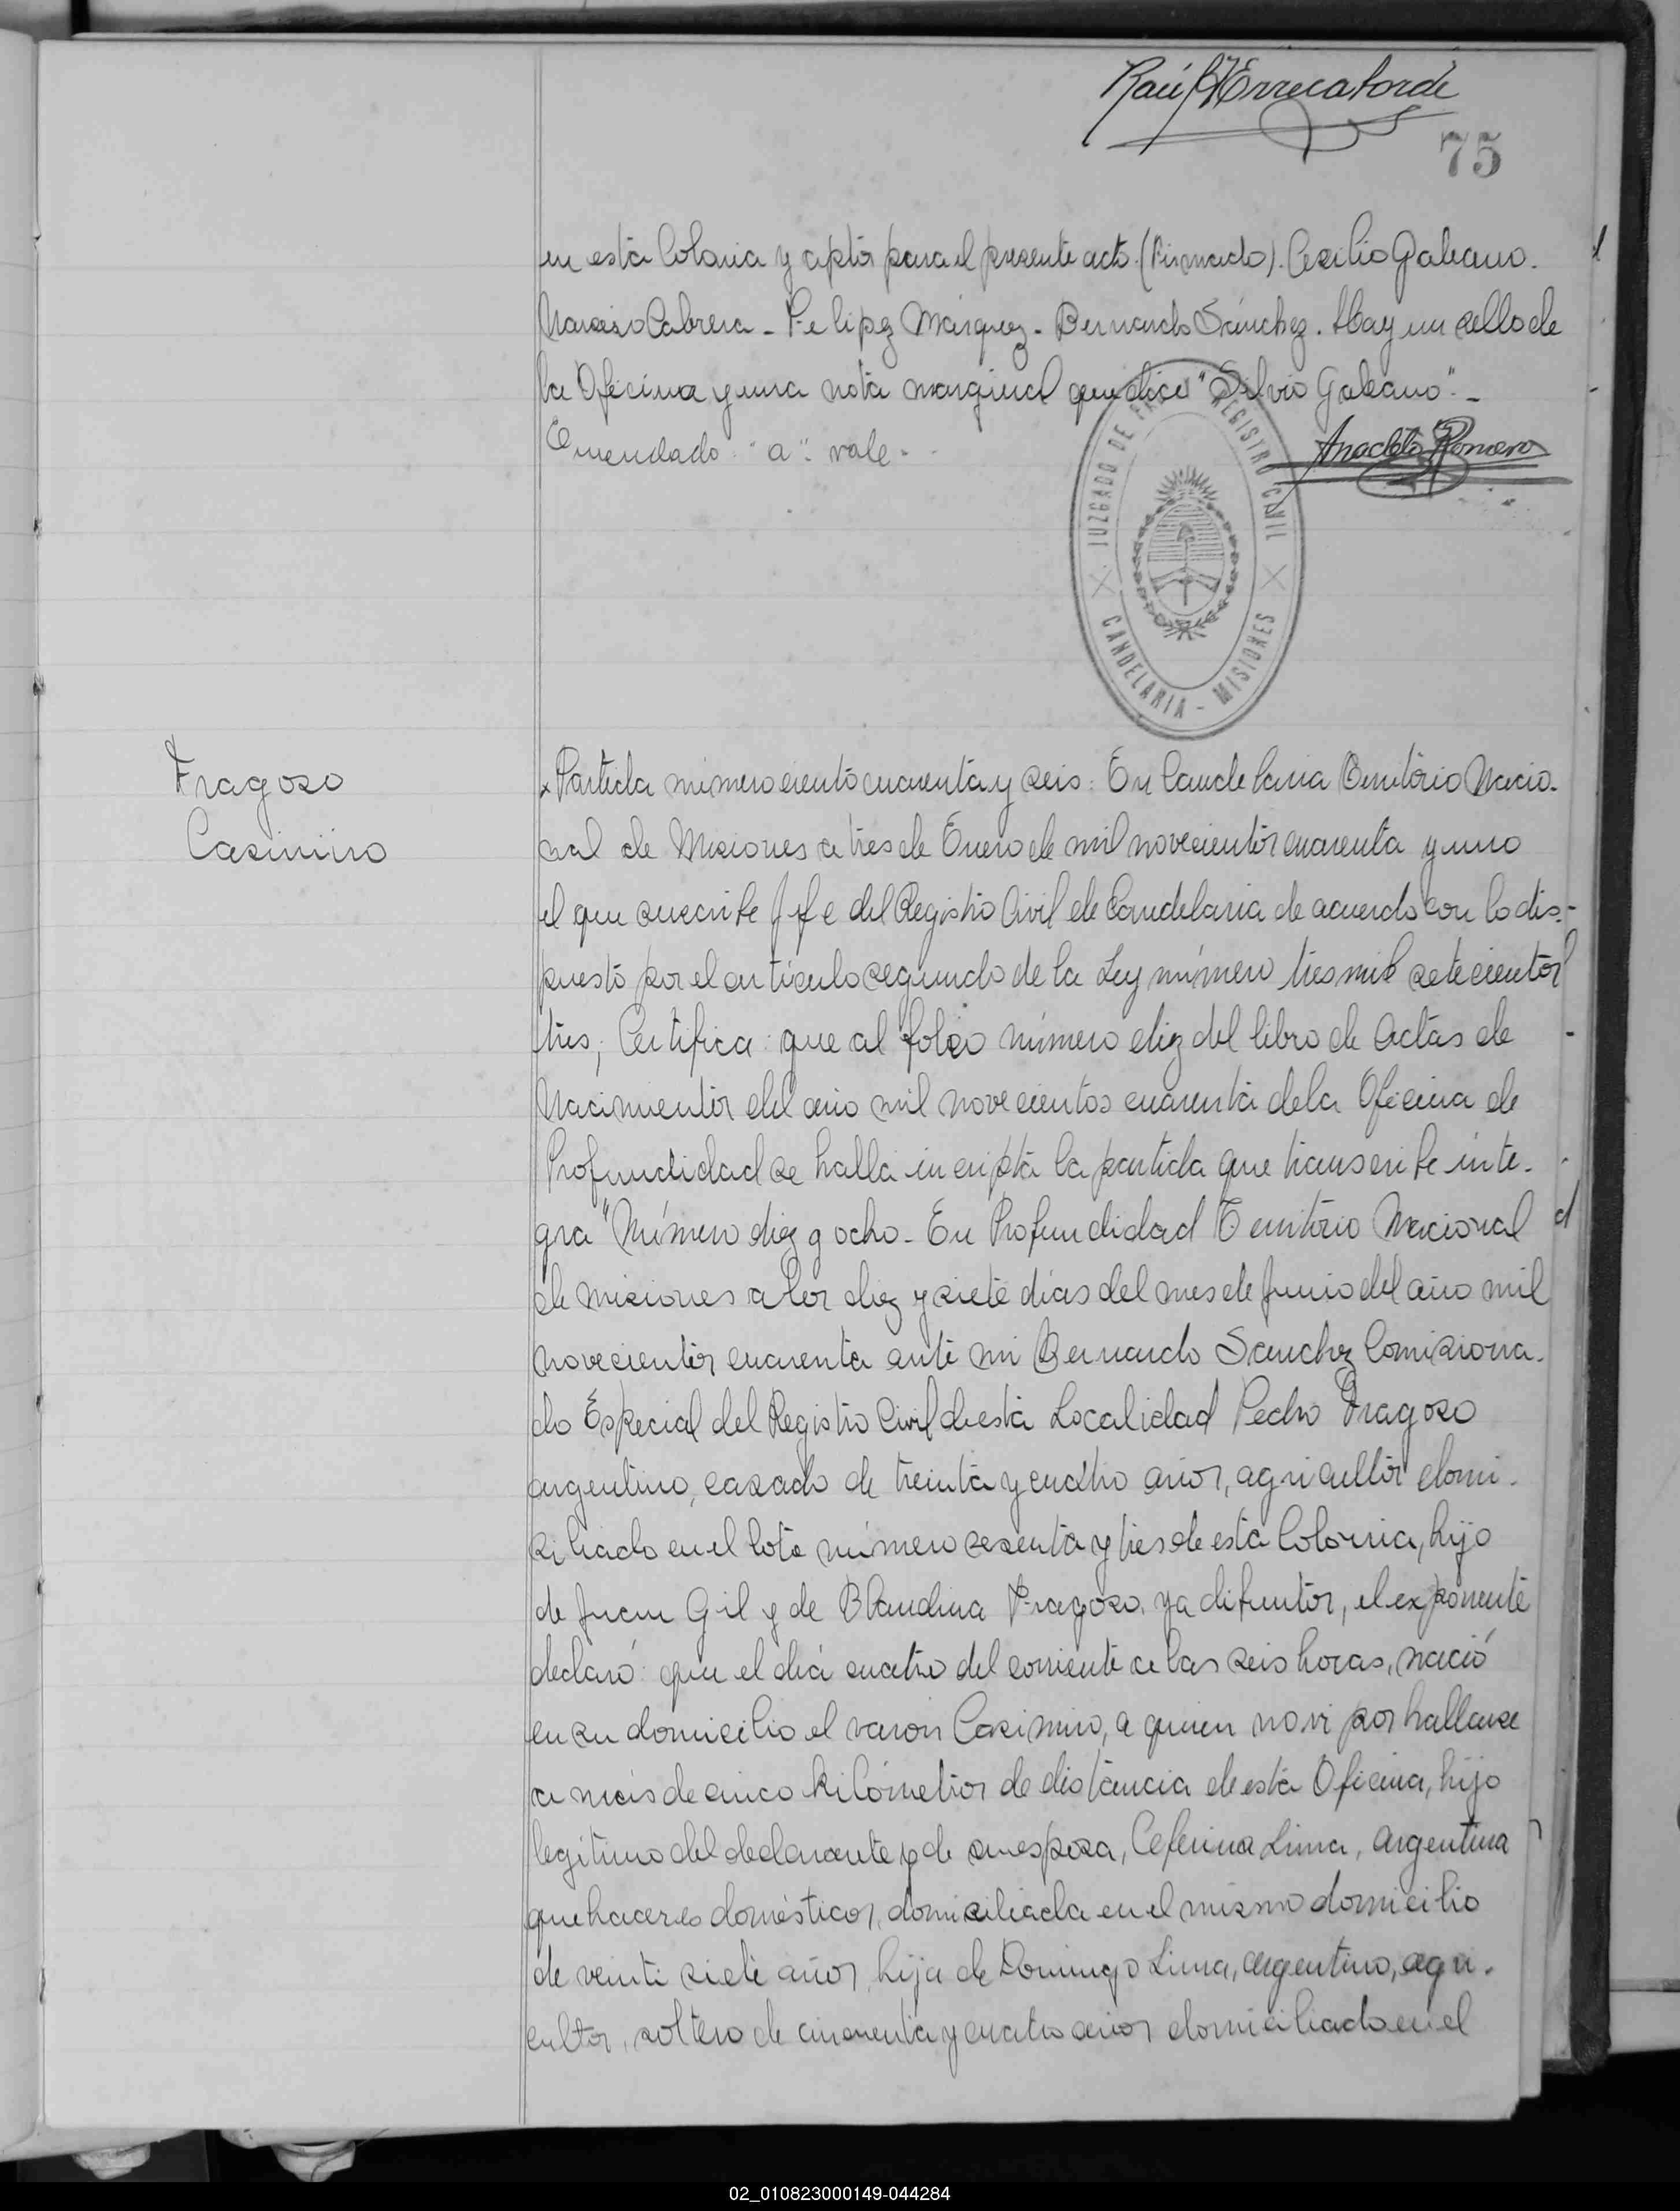 Raúl H Errecatorde
75
en esta Colonia y aptos para el presente acto. (Firmado). Cecilio Galeano.
Narciso Cabrera - Felipe Márquez - Bernardo Sánchez. Hay un sello de
la Oficina y una nota marginal que dice "Silvio Galeano".-
Emendado: "a": vale.-
Anacleto Romero
JUZGADO DE PAZ REGISTRO CIVIL
CANDELARIA - MISIONES
Fragoso
Casimiro
Partida número ciento cuarenta y seis: En Candelaria Territorio Nacio-
nal de Misiones a tres de Enero de mil novecientos cuarenta y uno
el que suscribe Jefe del Registro Civil de Candelaria de acuerdo con lo dis-
puesto por el artículo segundo de la Ley número tres mil setecientos
tres, Certifica: que al folio número diez del libro de Actas de
Nacimientos del año mil novecientos cuarenta de la Oficina de
Profundidad se halla incripta la partida que transcribe inte-
gra "Número diez y ocho - En Profundidad Territorio Nacional
de Misiones a los diez y siete días del mes de Junio del año mil
novecientos cuarenta ante mi Bernardo Sanchez Comisiona-
do Especial del Registro Civil de esta Localidad Pedro Fragoso
argentino, casado de treinta y cuatro años, agricultor domi-
ciliado en el lote número sesenta y tres de esta Colonia, hijo
de Juan Gil y de Blandina Fragoso, ya difuntos, el exponente
declaró: que el día cuatro del corriente a las seis horas, nació
en su domicilio el varon Casimiro, a quien no vi por hallarse
a más de cinco kilómetros de distancia de esta Oficina, hijo
legitimo del declarante y de su esposa, Ceferina Lima, argentina
quehaceres domésticos, domiciliada en el mismo domicilio
de veinti siete años, hija de Domingo Lima, argentino, agri-
cultor, soltero de cincuenta y cuatro años domiciliado en el
02_010823000149-044284